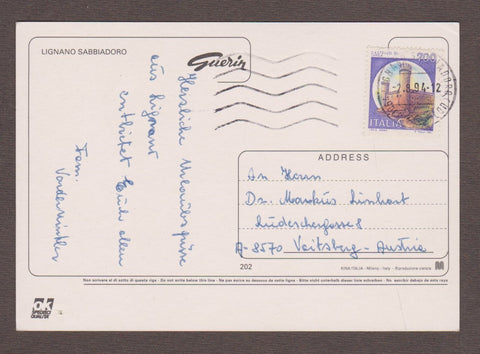 LIGNANO SABBIADORO
Guerin
Herzliche Urlaubsgrüsse
aus Lignano
entbietet Euch allen
Fam.
700
ITALIA
-2.8.94-12
ADDRESS
An Herrn
Dr. Markus Linhart
A-8570 Voitsberg-Austria
202
KINA ITALIA - Milano - Italy - Riproduzione vietata
Non scrivere al di sotto di questa riga - Do not write below this line - Ne pas écrire au dessous de cette ligne - Bitte nicht unter dieser linie schreiben - No. escribir debajo de esta raya
OK